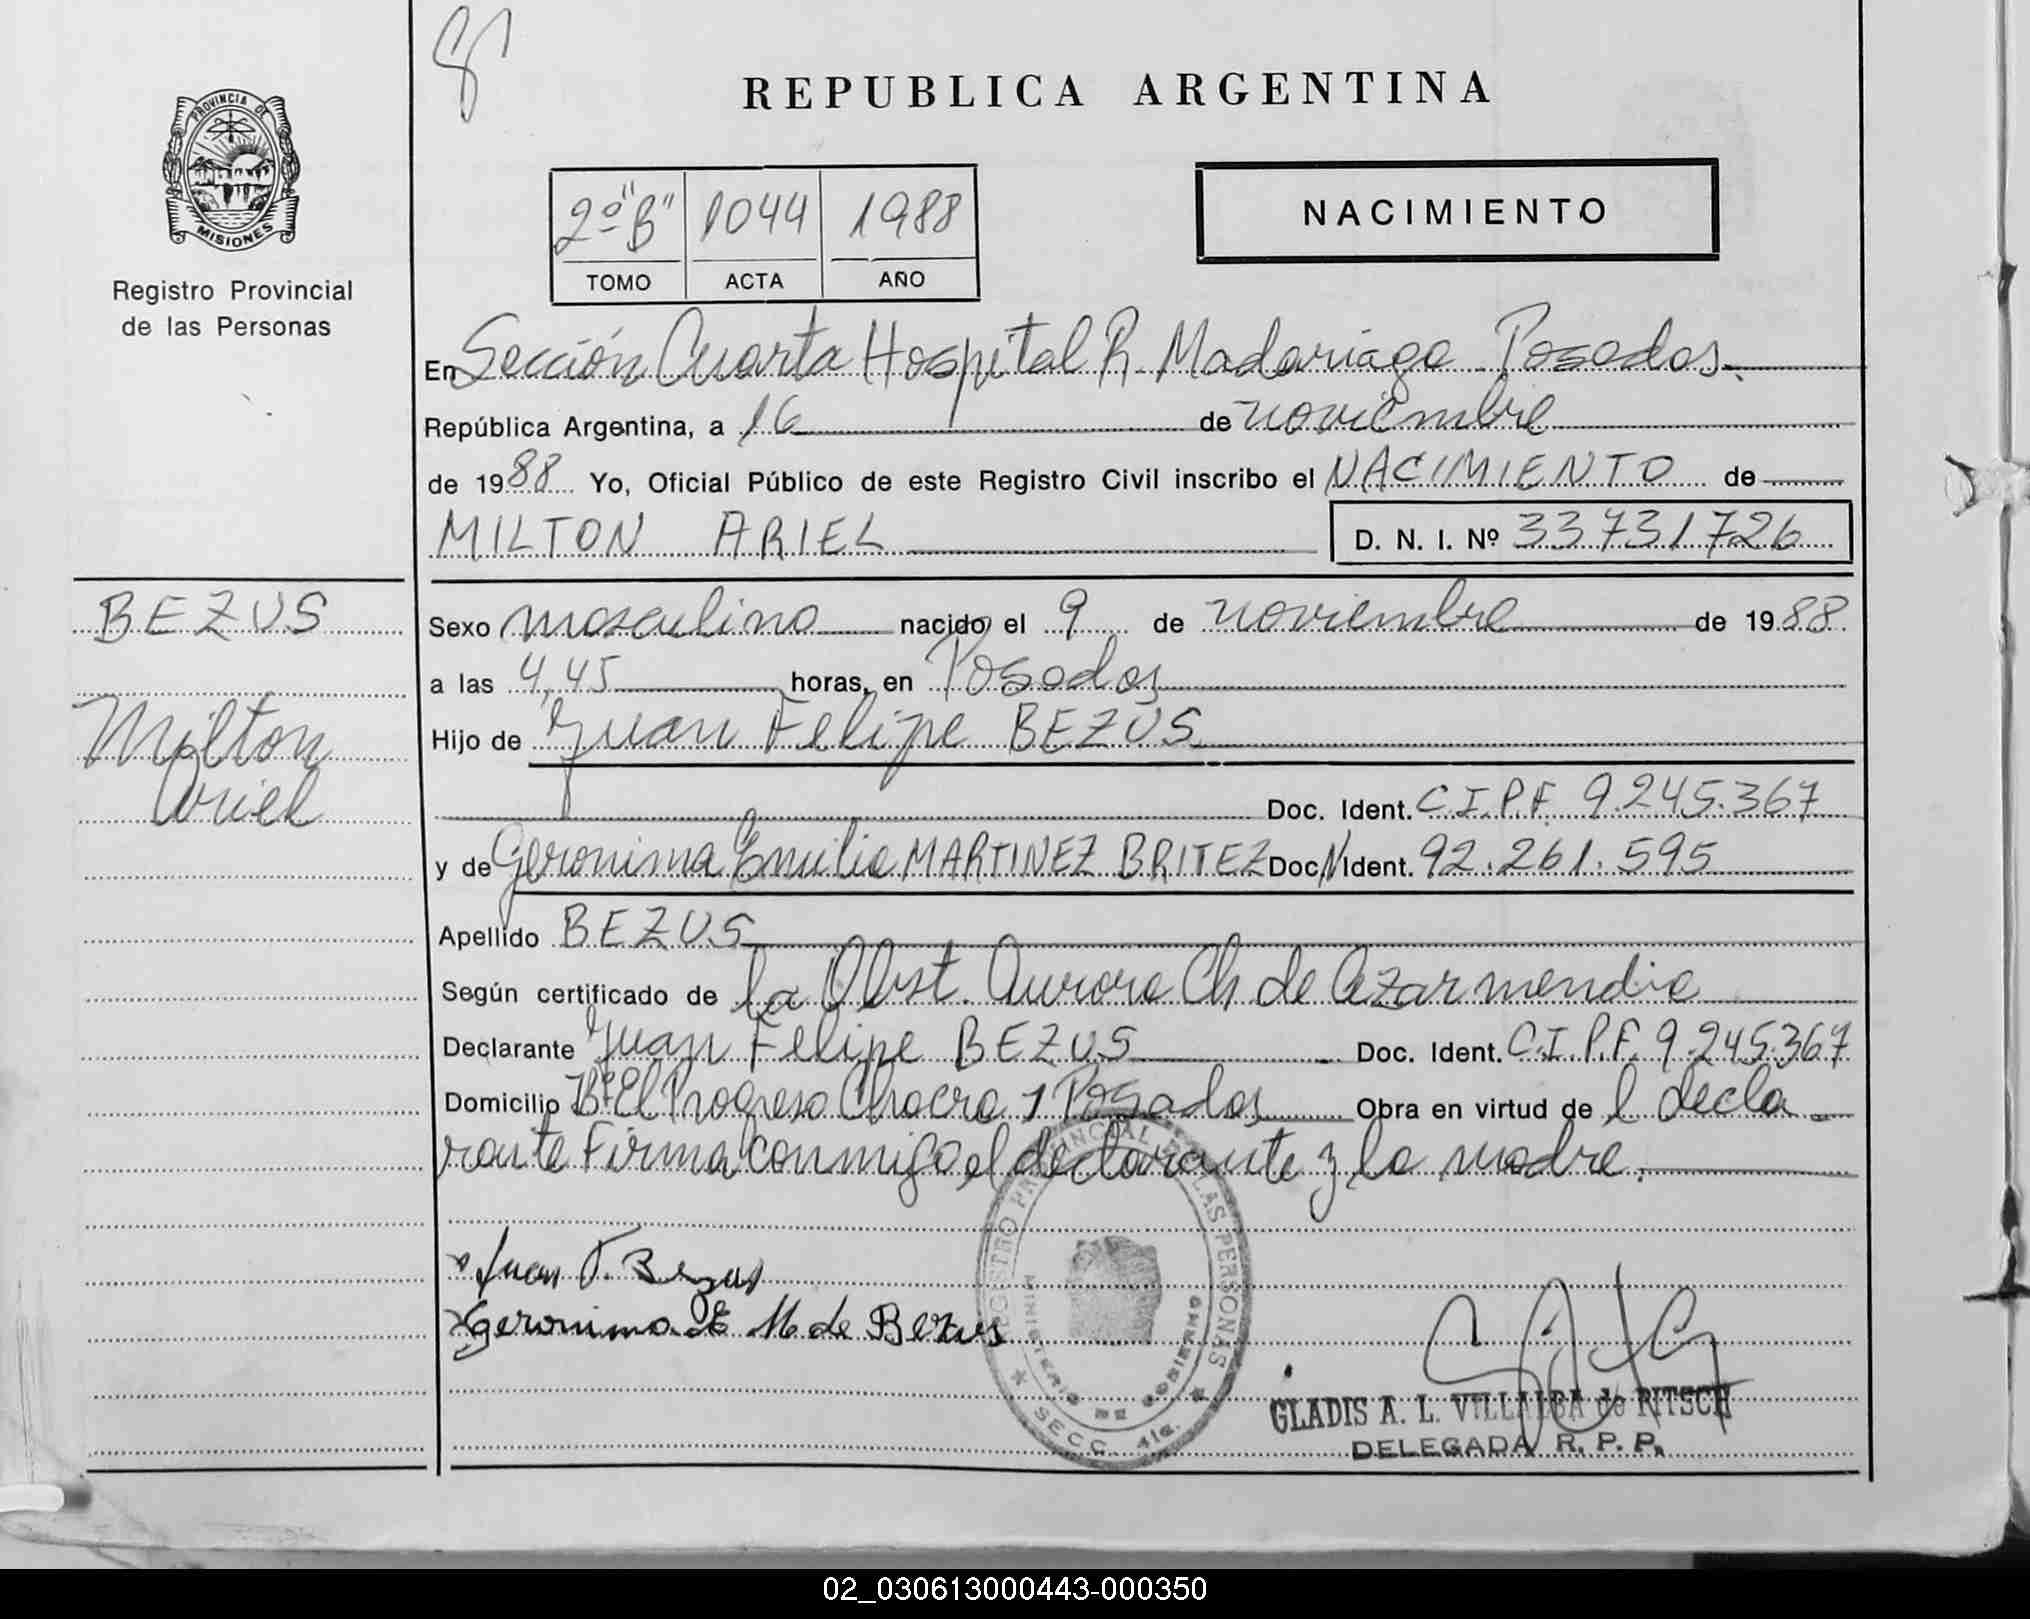 8
REPUBLICA ARGENTINA
PROVINCIA DE
MISIONES
Registro Provincial
de las Personas
2º "B" 1044 1988
TOMO ACTA AÑO
NACIMIENTO
En Sección Cuarta Hospital R. Madariaga Posadas.
República Argentina, a 16 de noviembre
de 1988 Yo, Oficial Público de este Registro Civil inscribo el NACIMIENTO de
MILTON ARIEL D. N. I. Nº 33731726
BEZUS
Milton
Ariel
Sexo masculino nacido el 9 de noviembre de 1988
a las 4,45 horas, en Posadas
Hijo de Juan Felipe BEZUS
Doc. Ident. C.I.P.F. 9.245.367
y de Geronima Emilia MARTINEZ BRITEZ Doc. Ident. 92.261.595
Apellido BEZUS
Según certificado de la Obst. Aurora Ch de Azarmendia
Declarante Juan Felipe BEZUS Doc. Ident. C.I.P.F. 9.245.367
Domicilio Bº El Progreso Chacra 1 Posadas Obra en virtud de l decla
rante Firma conmigo el declarante y la madre.
Juan F. Bezus
Geronima E M de Bezus
REGISTRO PROVINCIAL DE LAS PERSONAS
MINISTERIO DE GOBIERNO
SECC. 4ta.
GLADIS A. L. VILLALBA de RITSCH
DELEGADA R. P. P.
02_030613000443-000350